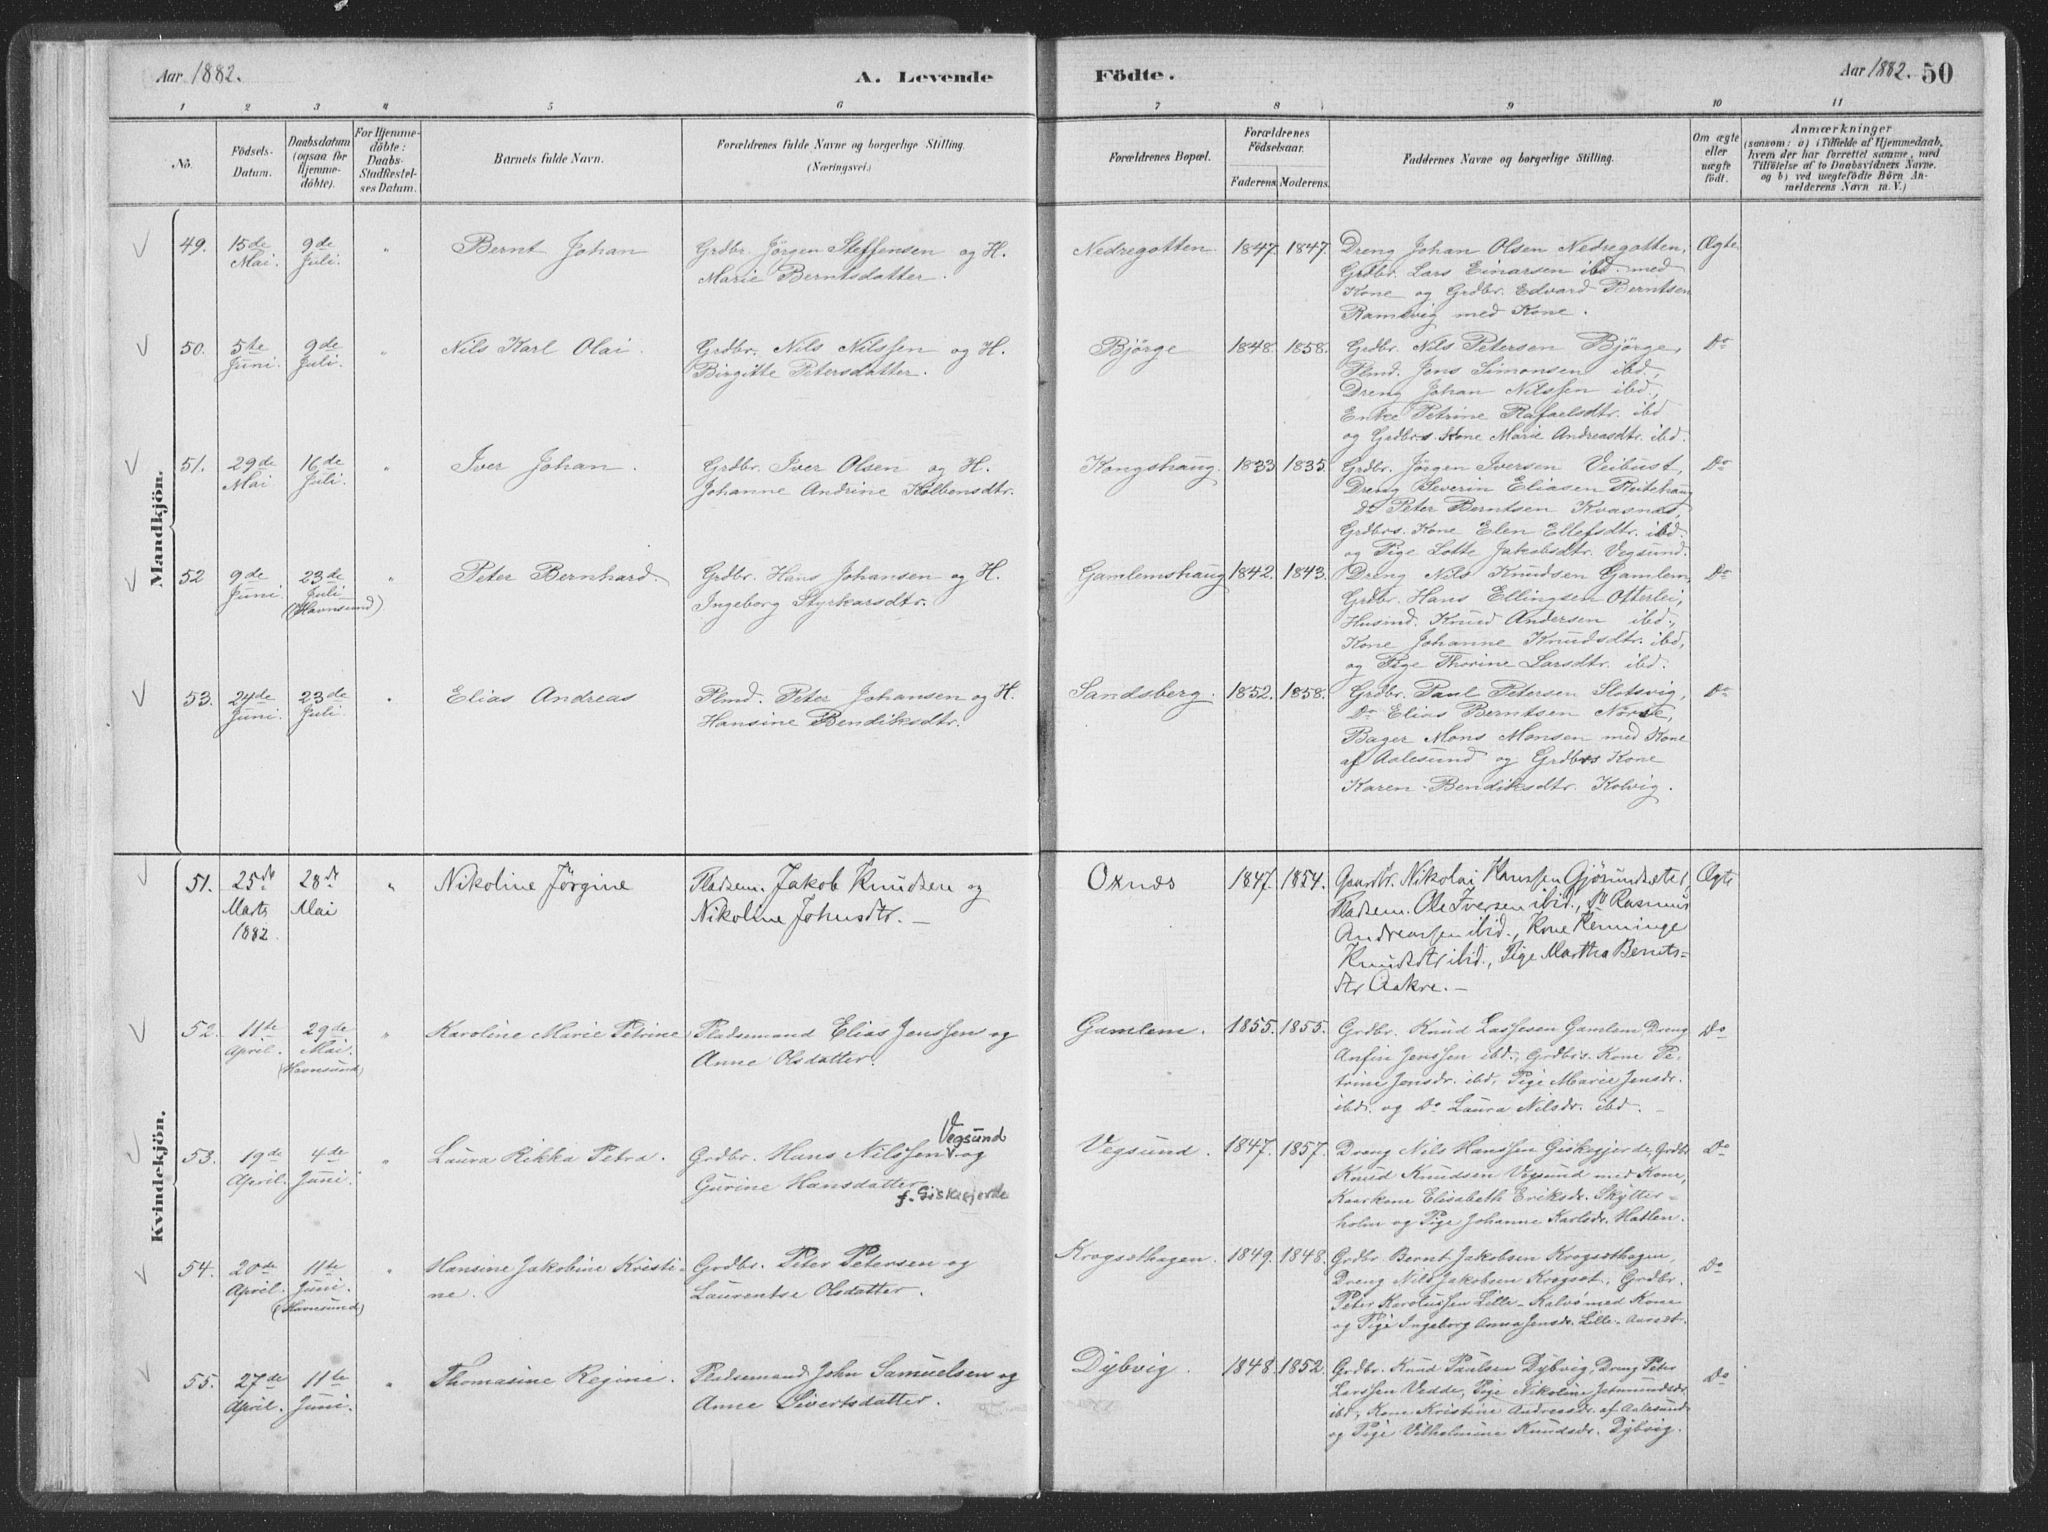 Aar 1882.
A. Levende
Födte.
Aar 1882. 50
1 2 3 4 5 6 7 8 9 10 11
Nö.
Födsels-Datum.
Daabsdatum (ogsaa for Hjemmedöbte).
For Hjemmedöbte: Daabs-Stadfæstelses Datum.
Barnets fulde Navn.
Forældrenes fulde Navne og borgerlige Stilling. (Næringsvei.)
Forældrenes Bopæl.
Forældrenes Födselsaar.
Faderens. Moderens.
Faddernes Navne og borgerlige Stilling.
Om ægte eller uægte födt.
Anmærkninger
(saasom: a) i Tilfælde af Hjemmedaab, hvem der har forrettet samme, med Tilföielse af to Daabsvidners Navne. og b) ved uægtefödte Börn Anmelderens Navn m. V.)
Mandkjön.
49. 15de Mai. 9de Juli. "
Bernt Johan
Grdbr. Jörgen Steffensen og H.
Marie Berntsdatter.
Nedregotten 1847. 1847.
Dreng Johan Olsen Nedregotten,
Grdbr. Lars Einarsen ibd. med
Kone og Grdbr. Edvard Berntsen
Ramsvig med Kone.
Ægte
50. 5te Juni. 9de Juli. "
Nils Karl Olai.
Grdbr. Nils Nilssen og H.
Birgitte Petersdatter.
Björge 1848. 1858.
Grdbr. Nils Petersen Björge,
Plmd. Jens Simonsen ibd.,
Dreng Johan Nilssen ibd.,
Enke Petrine Rafaelsdtr. ibd
og Grdbrs. Kone Marie Andreasdtr. ibd.
Do
51. 29de Mai 16de Juli. "
Iver Johan.
Grdbr. Iver Olsen og H.
Johanne Andrine Kolbensdtr.
Kongshaug. 1833 1835.
Grdbr. Jörgen Iversen Veibust,
Dreng Severin Eliasen Reitehaug
Do Peter Berntsen Kvasnes,
Grdbrs. Kone Elen Ellefsdtr. ibd.
og Pige Lotte Jakobsdtr. Vegsund.
Do
52 9de Juni. 23de Juli (Havnsund) "
Peter Bernhard.
Grdbr. Hans Johansen og H.
Ingeborg Styrkarsdtr.
Gamlemshaug 1842. 1843.
Dreng Nils Knudsen Gamlem,
Grdbr. Hans Ellingsen Otterlei,
Husmd. Knud Andersen ibd.,
Kone Johanne Knudsdtr. ibd,
og Pige Thorine Larsdtr. ibd.
Do
53. 24de Juni. 23de Juli. "
Elias Andreas
Plmd. Peter Johansen og H.
Hansine Bendiksdtr.
Sandsberg. 1852. 1858.
Grdbr. Paul Petersen Slotsvig,
Do Elias Berntsen Norve,
Bager Mons Monsen med Kone
af Aalesund og Grdbrs Kone
Karen Bendiksdtr. Kolvig.
Do
Kvindekjön.
51. 25de Marts 1882 28de Mai "
Nikoline Jörgine
Pladsem. Jakob Knudsen og
Nikoline Johnsdtr. —
Oxnæs 1847. 1854.
Gaardbr. Nikolai Hanssen Gjörundsæter,
Pladsem. Ole Iversen ibid., Do Rasmus
Andreassen ibid., Kone Henninge
Knudsdtr ibid., Pige Martha Bernts-
dtr Aakre. —
Ægte
52. 11te April. 29de Mai. (Havnsund) "
Karoline Marie Petrine
Pladsemand Elias Jenssens og
Anne Olsdatter.
Gamlem. 1855. 1855.
Grdbr. Knud Lassesen Gamlem, Dreng
Anfin Jenssen ibd., Grdbrs. Kone Pe-
trine Jensdr. ibd, Pige Marie Jensdr.
ibd. og Do Laura Nilsdr. ibd.
Do
53. 19de April. 4de Juni. "
Laura Rikka Petra.
Vegsund
Grdbr. Hans Nilssen og
Gurine Hansdatter
f. Giskegjerde
Vegsund. 1847. 1857.
Dreng Nils Hanssen Giskegjerde, Grdbr
Knud Knudsen Vegsund med Kone,
Kaarkone Elisabeth Eriksdr. Skytter-
holm og Pige Johanne Karlsdr. Hatlen.
Do
54. 20de April. 11te Juni. (Havnsund) "
Hansine Jakobine Kristi-
ne.
Grdbr. Peter Petersen og
Laurentse Olsdatter.
Krogsæthagen. 1849. 1848.
Grdbr Bernt Jakobsen Krogsæthagen,
Dreng Nils Jakobsen Krogsæt, Grdbr.
Peter Karolussen Lille-Kalvö med Kone
og Pige Ingeborg Anna Jensdr. Lille-Auræt.
Do
55. 27de April. 11te Juni. "
Thomasine Regine.
Pladsemand John Samuelsens og
Anne Sivertsdatter.
Dybvig. 1848. 1852.
Grdbr. Knud Paulsen Dybvig, Dreng Peter
Larssen Vedde, Pige Nikoline Jetmundsdr.
ibd., Kone Kristine Andreasdr. af Aalesund
og Pige Vilhelmine Knudsdr. Dybvig.
Do